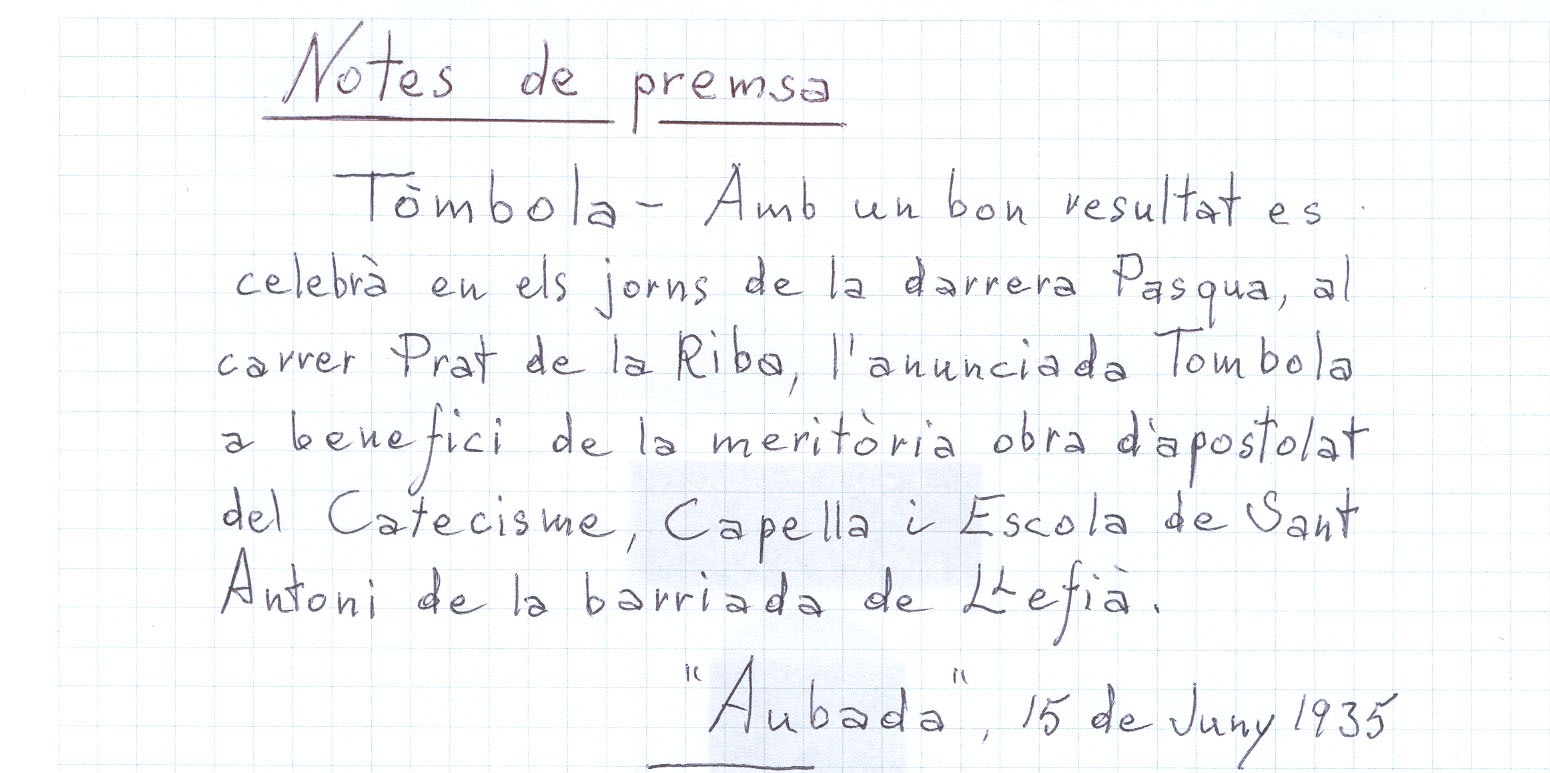 Notes de premsa
Tòmbola - Amb un bon resultat es
celebrà en els jorns de la darrera Pasqua, al
carrer Prat de la Riba, l'anunciada Tombola
a benefici de la meritòria obra d'apostolat
del Catecisme, Capella i Escola de Sant
Antoni de la barriada de Llefià.
"Aubada", 15 de Juny 1935